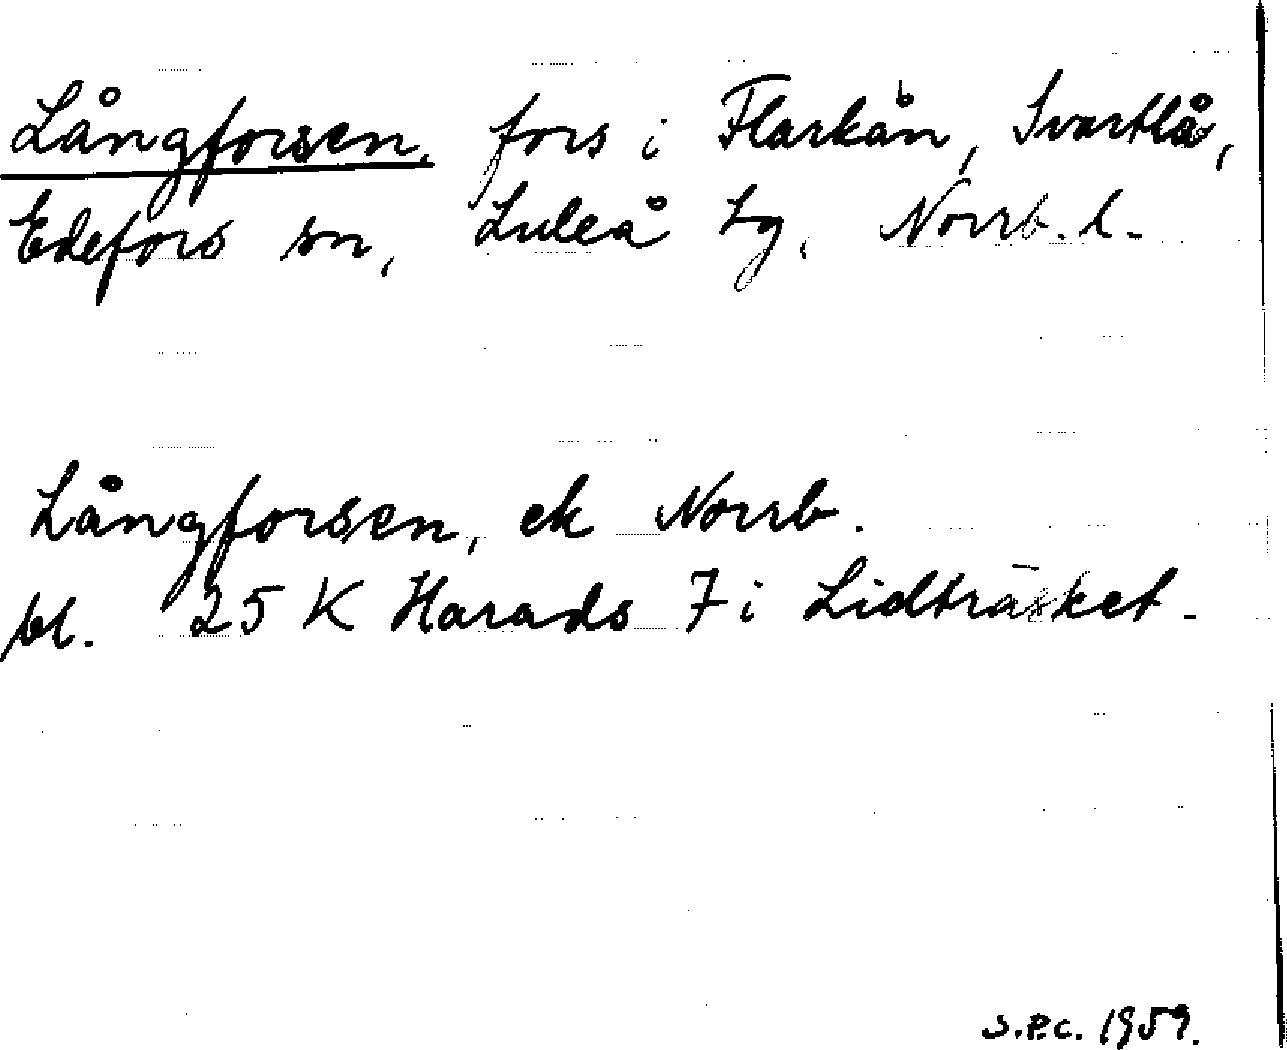 Långforsen, fors i Flarkån, Svartlå,
Edefors sn, Luleå tg, Norrb. l.
Långforsen, ek Norrb.
bl. 25 K Harads 7 i Lidträsket.
S.P.C. 1959.